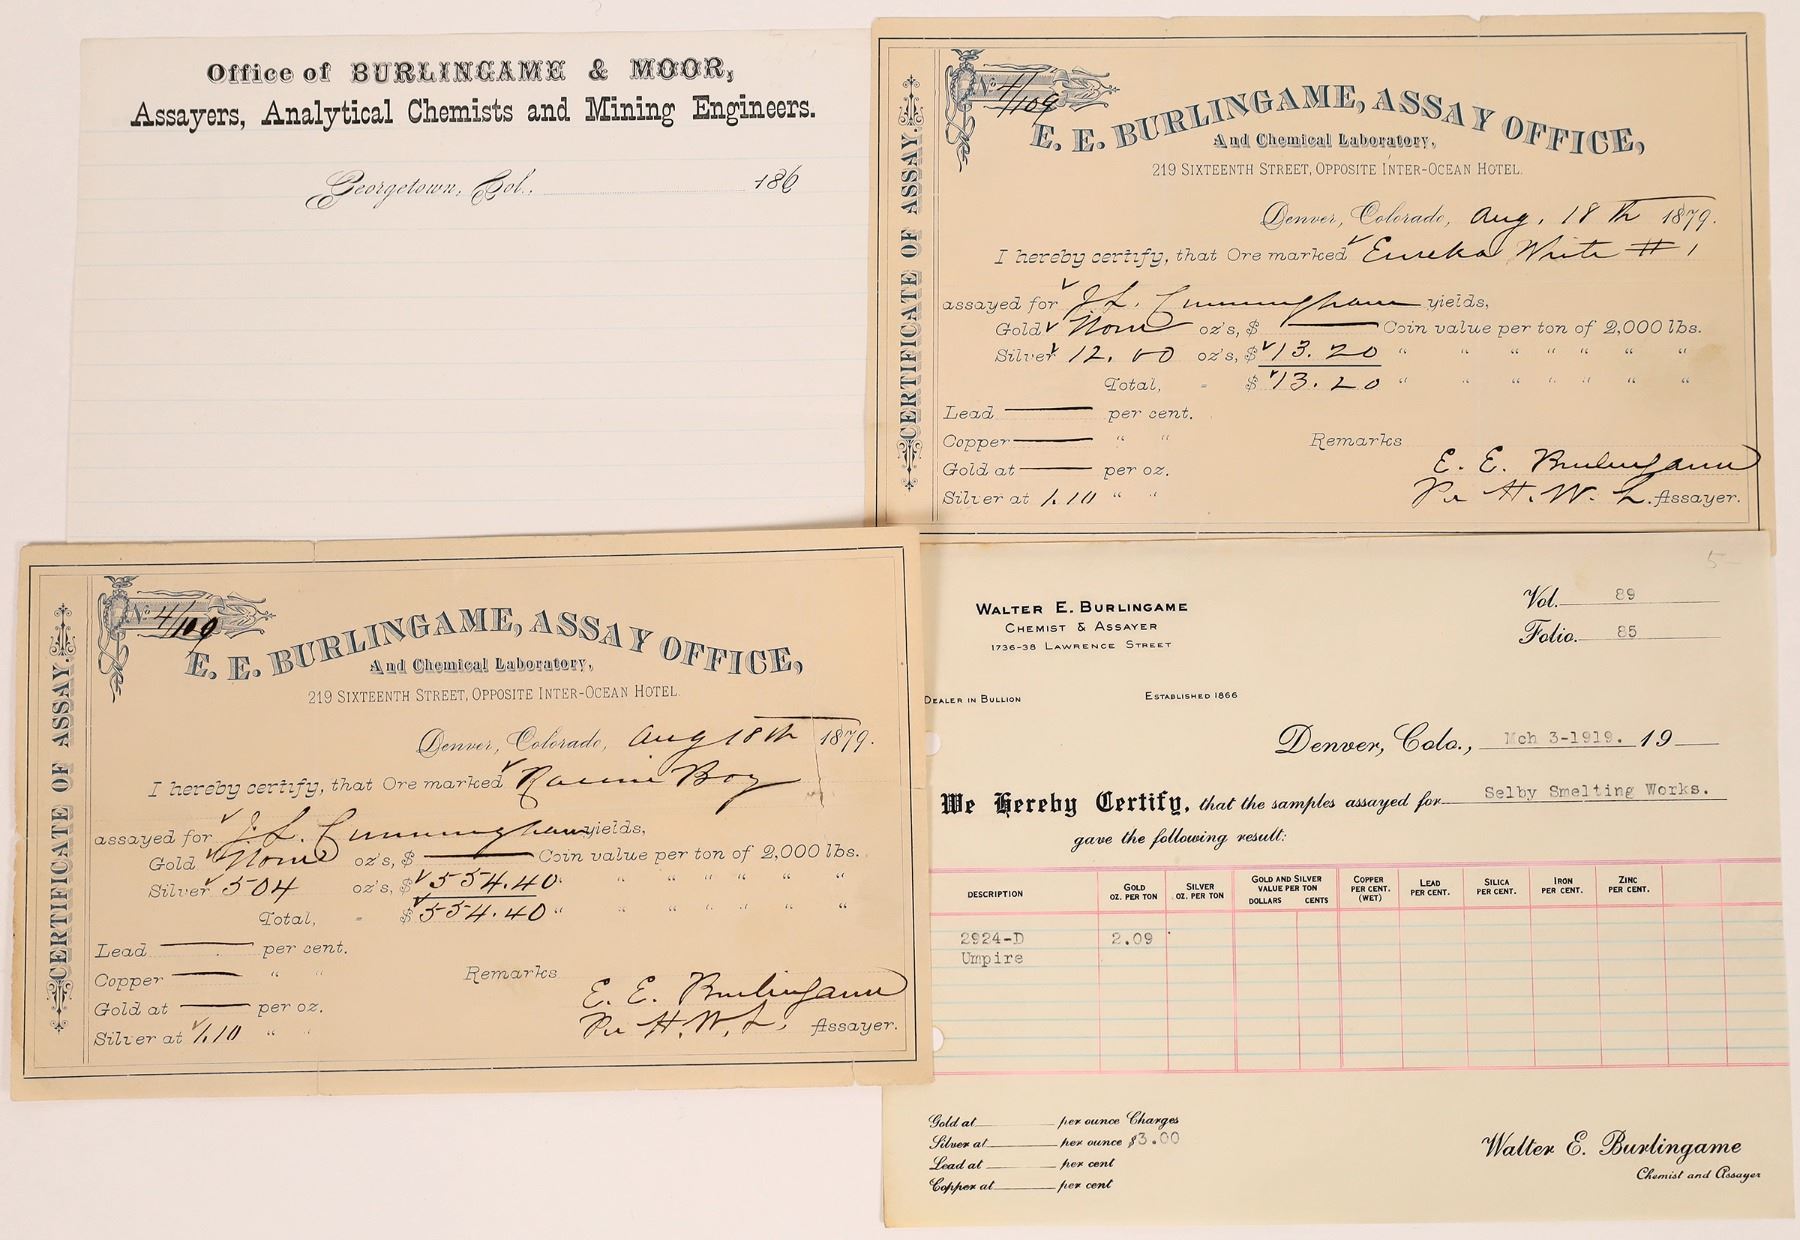 Office of BURLINGAME & MOOR,
Assayers, Analytical Chemists and Mining Engineers.
Georgetown, Col., 186
CERTIFICATE OF ASSAY.
No. 4/109
E. E. BURLINGAME, ASSAY OFFICE,
And Chemical Laboratory,
219 SIXTEENTH STREET, OPPOSITE INTER-OCEAN HOTEL.
Denver, Colorado, Aug. 18th 1879.
I hereby certify, that Ore marked Eureka White # 1
assayed for J. L. Cunningham yields,
Gold None oz's, $ Coin value per ton of 2,000 lbs.
Silver 12.00 oz's, $ 13.20 " " " " " " "
Total, = $ 13.20 " " " " " " "
Lead per cent.
Copper " "
Remarks
Gold at per oz.
E. E. Burlingame
Silver at 1.10 " "
Per H. W. L. Assayer.
CERTIFICATE OF ASSAY.
No. 4/109
E. E. BURLINGAME, ASSAY OFFICE,
And Chemical Laboratory,
219 SIXTEENTH STREET, OPPOSITE INTER-OCEAN HOTEL.
Denver, Colorado, Aug 18th 1879.
I hereby certify, that Ore marked Boy
assayed for J. L. Cunningham yields,
Gold None oz's, $ Coin value per ton of 2,000 lbs.
Silver 504 oz's, $ 554.40 " " " " " "
Total, = $ 554.40 " " " " " " "
Lead per cent.
Copper " "
Remarks
Gold at per oz.
E. E. Burlingame
Silver at 1.10 " "
Per H. W. L. Assayer.
5-
WALTER E. BURLINGAME
CHEMIST & ASSAYER
1736-38 LAWRENCE STREET
Vol. 89
Folio. 85
DEALER IN BULLION ESTABLISHED 1866
Denver, Colo., Mch 3-1919. 19
We Hereby Certify, that the samples assayed for Selby Smelting Works.
gave the following result:
DESCRIPTION
GOLD OZ. PER TON
SILVER OZ. PER TON
GOLD AND SILVER VALUE PER TON DOLLARS CENTS
COPPER PER CENT. (WET)
LEAD PER CENT.
SILICA PER CENT.
IRON PER CENT.
ZINC PER CENT.
2924-D 2.09
Umpire
Gold at per ounce Charges
Silver at per ounce $3.00
Lead at per cent
Copper at per cent
Walter E. Burlingame
Chemist and Assayer